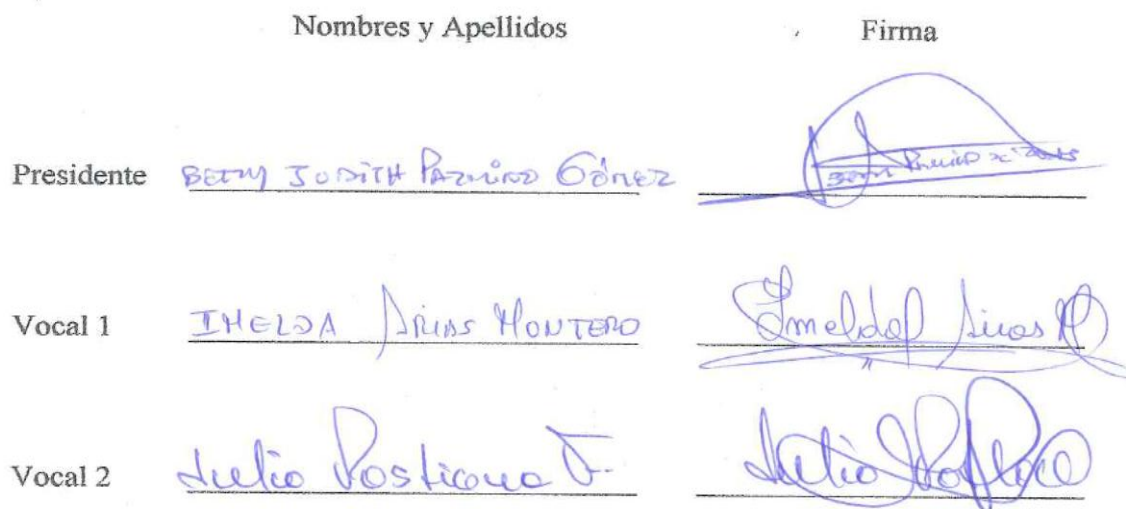 Nombres y Apellidos Firma
Presidente BETZY JUDITH PAZMIÑO GÓMEZ
Vocal 1 IMELDA ARIAS MONTERO Imelda Arias M
Vocal 2 Julio